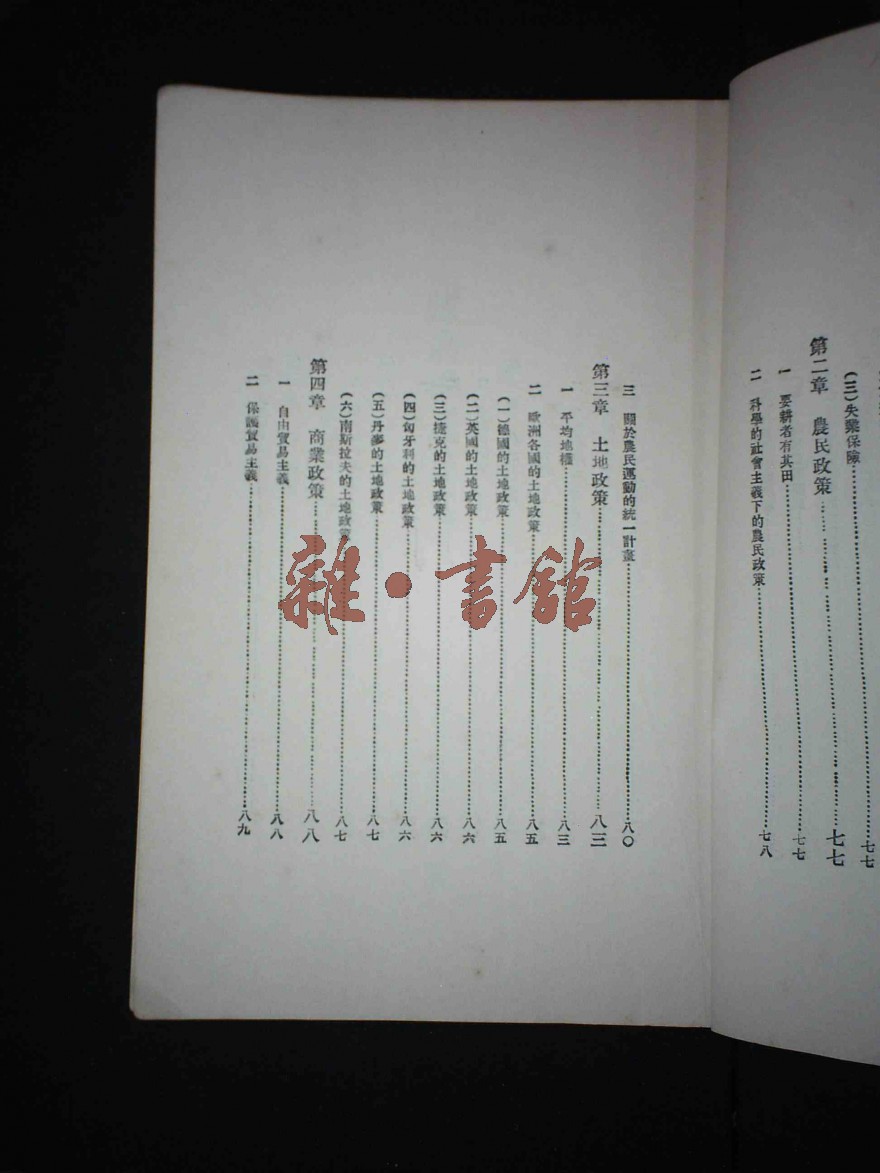 (三)失業保險……七七
第二章 農民政策……七七
一 要耕者有其田……七七
二 科學的社會主義下的農民政策……七八
三 關於農民運動的統一計畫……八〇
第三章 土地政策……八三
一 平均地權……八三
二 歐洲各國的土地政策……八五
(一)德國的土地政策……八五
(二)英國的土地政策……八六
(三)捷克的土地政策……八六
(四)匈牙利的土地政策……八六
(五)丹麥的土地政策……八七
(六)南斯拉夫的土地政策……八七
第四章 商業政策……八八
一 自由貿易主義……八八
二 保護貿易主義……八九
雜·書館